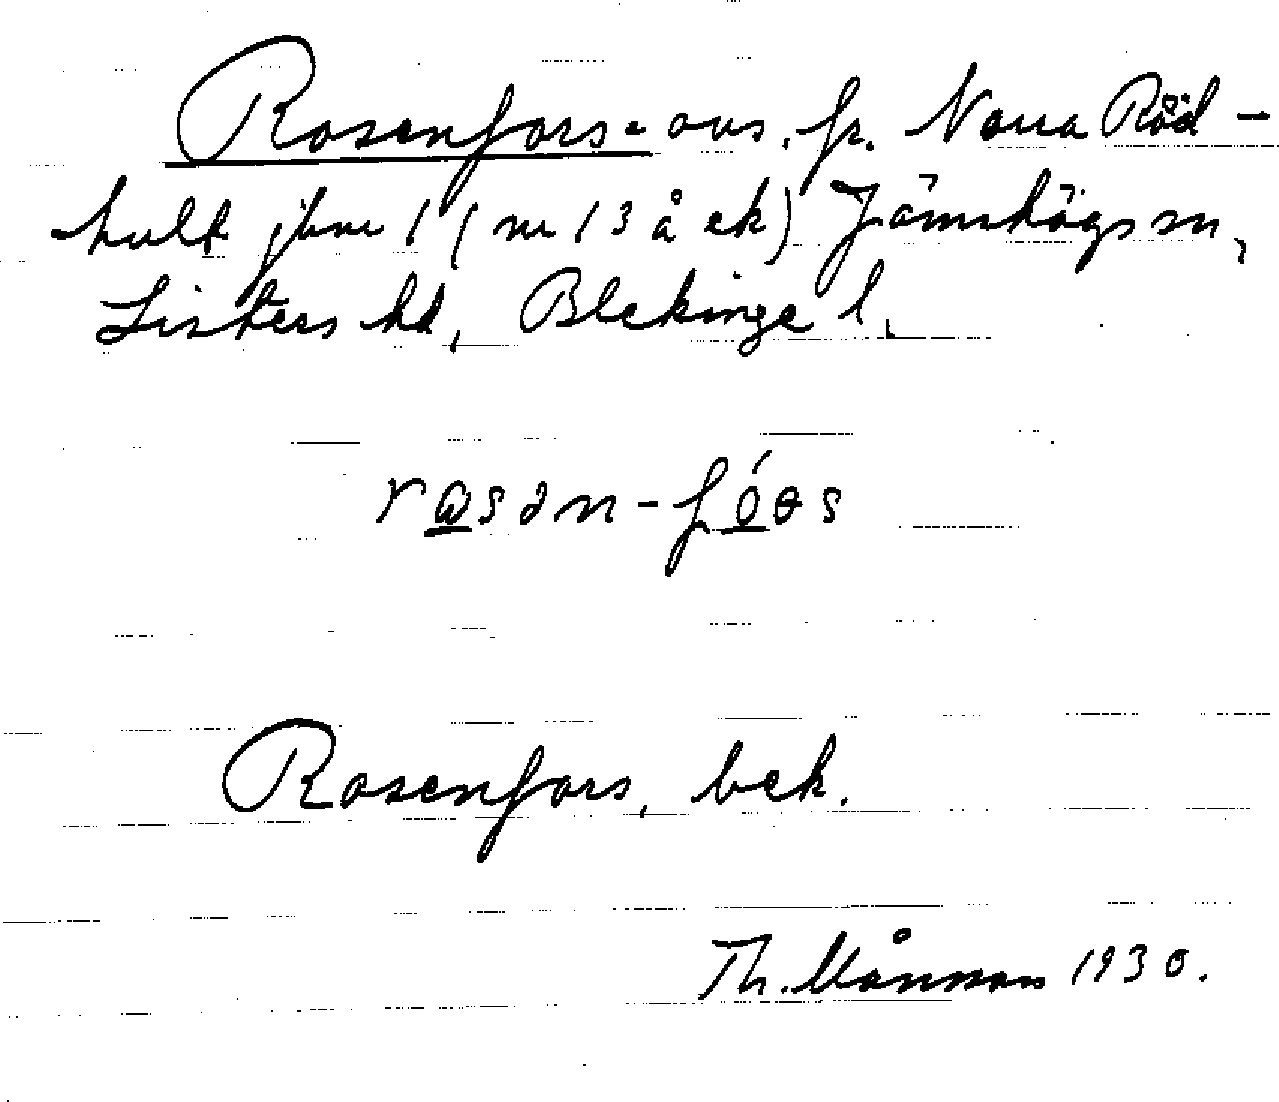 Rosenfors- avs. fr. Norra Röd-
hult jbnr 1 (nr 13 å ek) Jämshögs sn,
Listers hd, Blekinge l.
rɷsən-fóɵs
Rosenfors, bek.
Th. Månsson 1930.